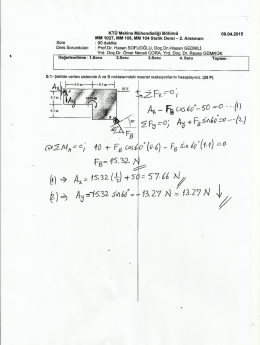 KTÜ Makina Mühendisliği Bölümü
08.04.2015
MM 1027, MM 108, MM 104 Statik Dersi – 2. Arasınavı
Süre : 90 dakika
Ders Sorumluları : Prof.Dr. Hasan SOFUOĞLU, Doç.Dr. Hasan GEDİKLİ,
Yrd. Doç.Dr. Ömer Necati CORA, Yrd. Doç. Dr. Recep GÜMRÜK
Değerlendirme : 1.Soru 2.Soru 3.Soru 4. Soru Toplam :
S.1- Şekilde verilen sistemde A ve B noktalarındaki mesnet reaksiyonlarını hesaplayınız. (25 P)
ΣFx=0;
Ax - FB cos60° - 50 = 0 ...(1)
ΣFy=0; Ay + FB sin60° = 0 ...(2)
ΣMA=0; 10 + FB cos60° (0.6) - FB sin60° (1.1) = 0
FB = 15.32 N
(1) ⇒ Ax = 15.32 (1/2) + 50 = 57.66 N
(2) ⇒ Ay = -15.32 sin60° = -13.27 N = 13.27 N ↓